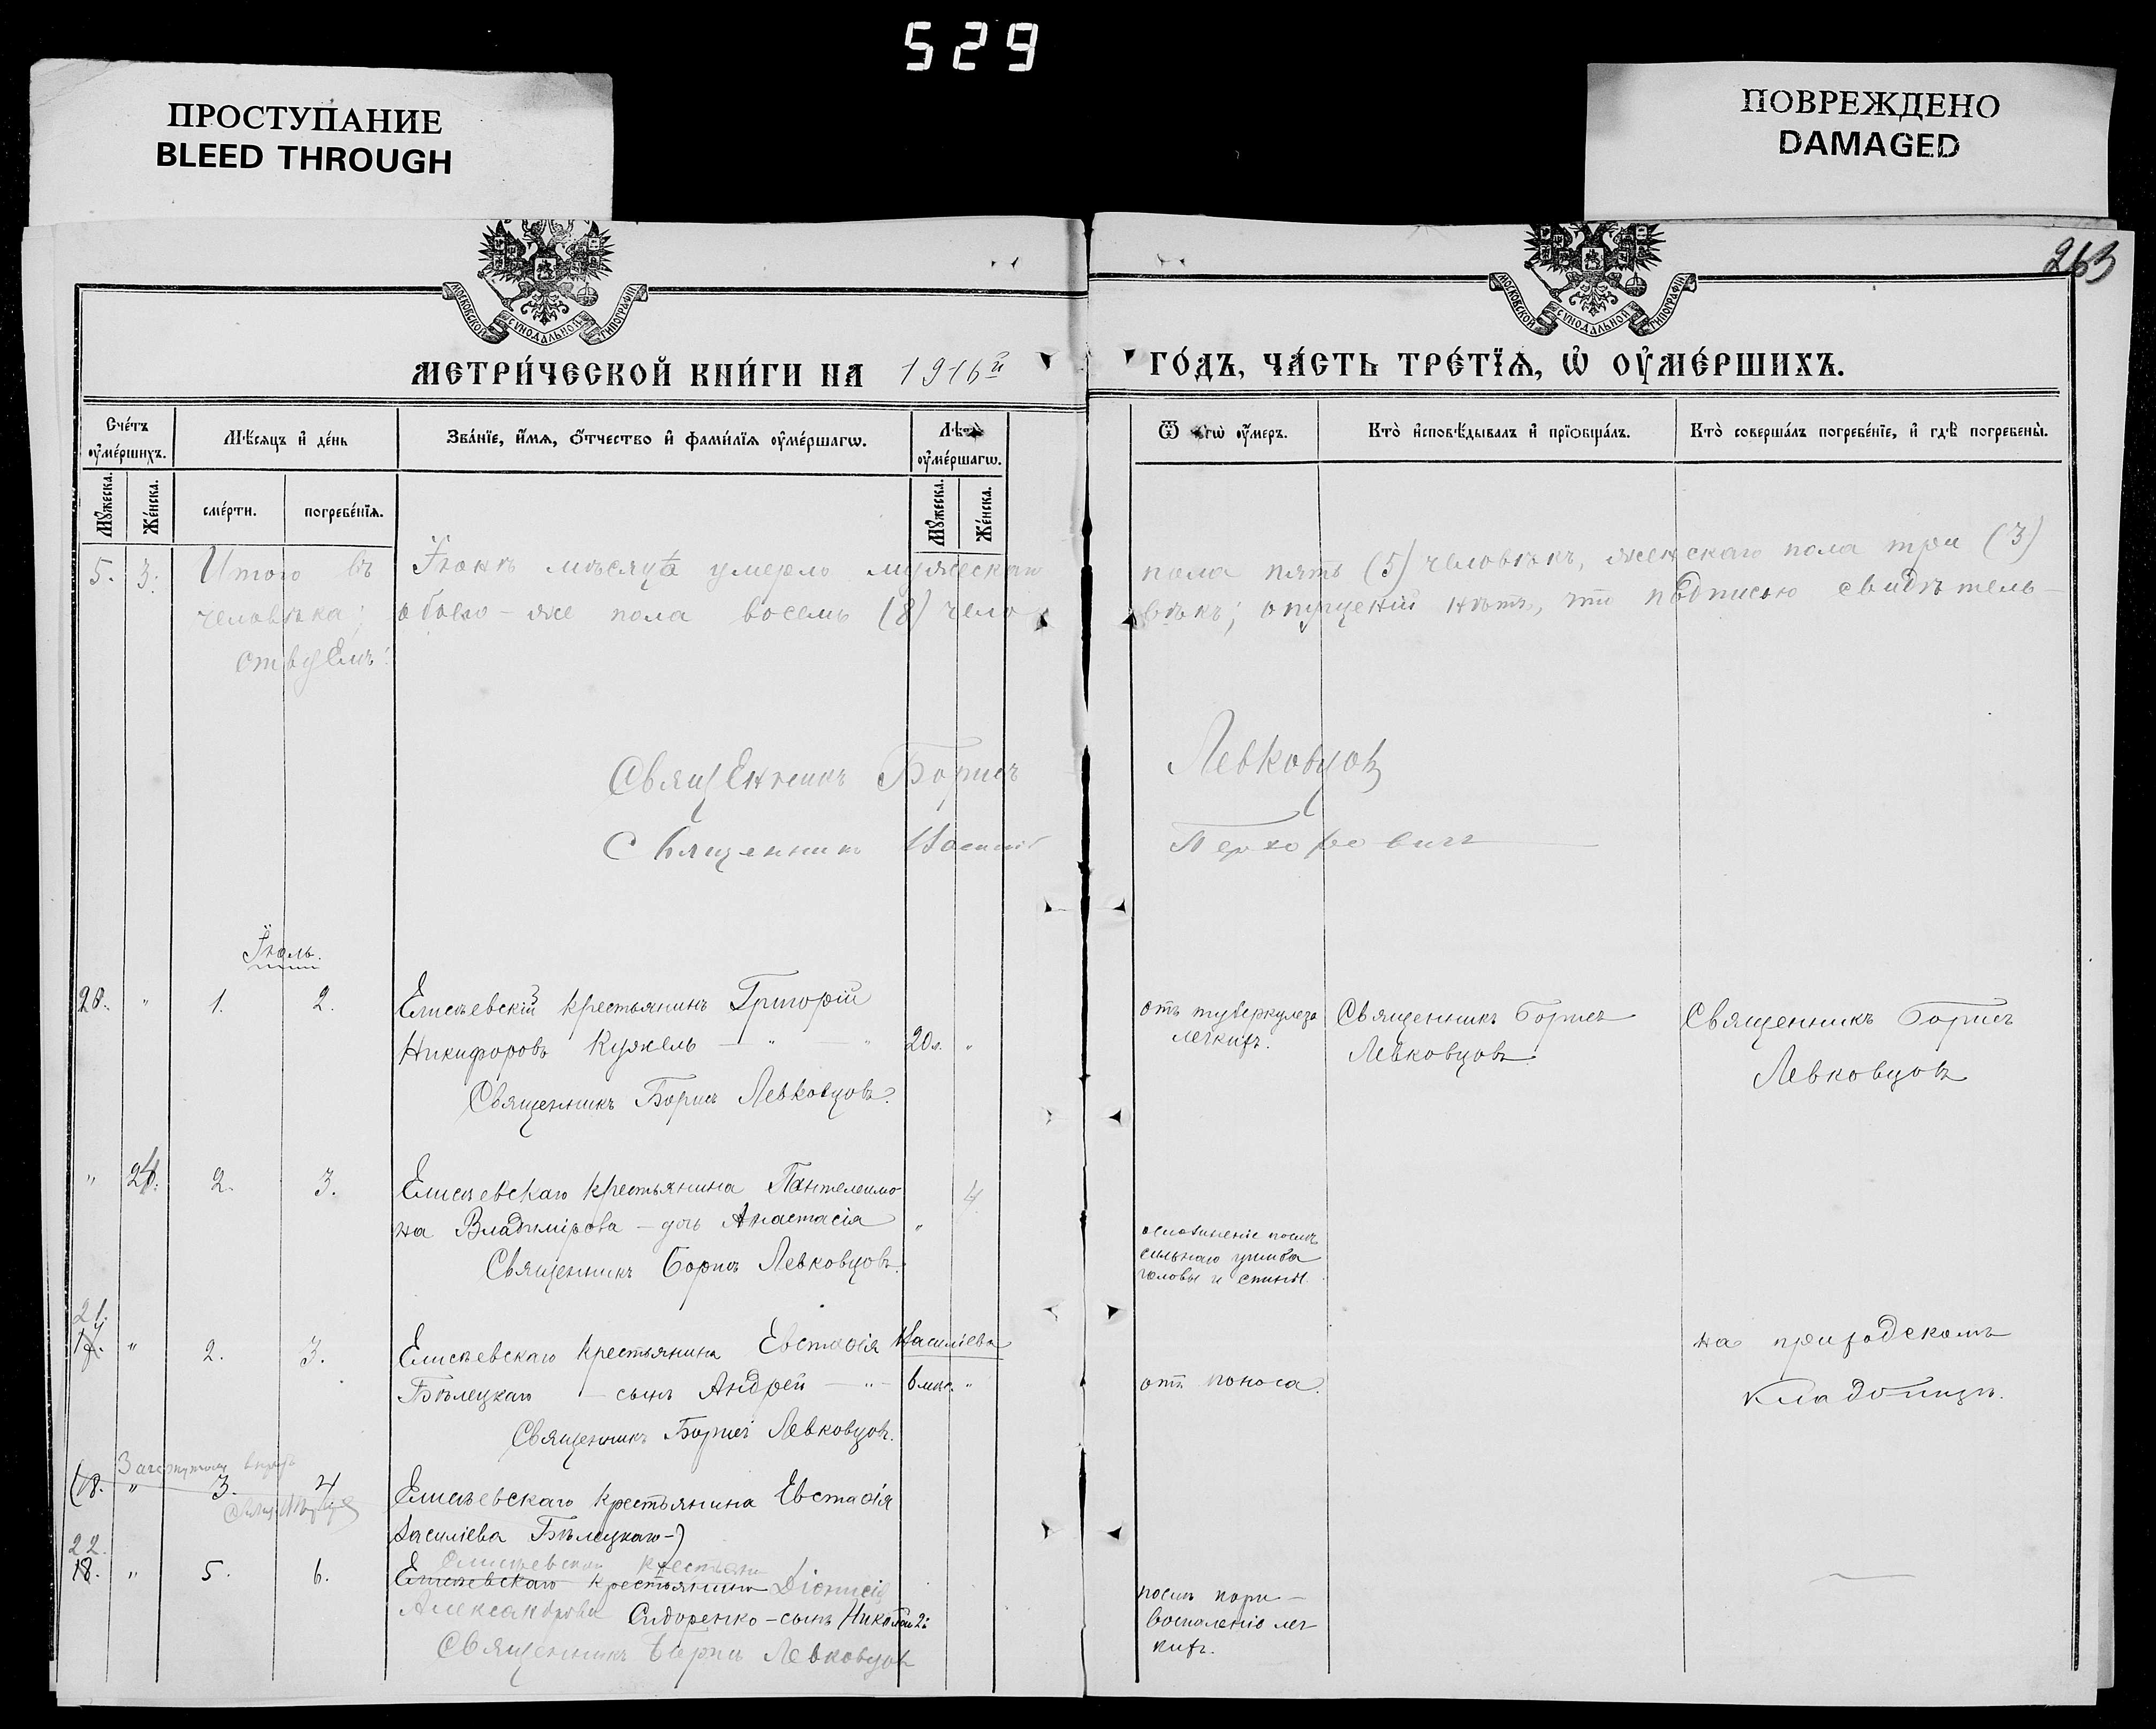 529
ПРОСТУПАНИЕ
BLEED THROUGH
ПОВРЕЖДЕНО
DAMAGED
263
МОСКОВСКОЙ СѴНОДАЛЬНОЙ ТИПОГРАФІИ
МОСКОВСКОЙ СѴНОДАЛЬНОЙ ТИПОГРАФІИ
МЕТРИ́ЧЕСКОЙ КНИ́ГИ НА 1916й
ГО́ДЪ, ЧА́СТЬ ТРЕ́ТЇѦ, Ѽ ОУ҆МЕ́РШИХЪ.
Сче́тъ оу҆ме́ршихъ.
Мꙋ́жеска.
Же́нска.
Мѣ́сяцъ и҆ де́нь
сме́рти.
погребе́нїѧ.
Зва́нїе, и҆́мѧ, о҆́тчество и҆ фами́лїѧ оу҆ме́ршагѡ.
Лѣ́та оу҆ме́ршагѡ.
Мꙋ́жеска.
Же́нска.
Ѿ чегѡ̀ оу҆́меръ.
Кто̀ и҆сповѣ́дывалъ и҆ прїѡбща́лъ.
Кто̀ соверша́лъ погребе́нїе, и҆ гдѣ̀ погребены̀.
5. 3. Итого въ Іюнѣ мѣсяцѣ умерло мужескаго пола пять (5) человѣкъ, женскаго пола три (3)
человѣка; обоего-же пола восемь (8) чело вѣкъ; опущеній нѣтъ, что подписью свидѣтель-
ствуемъ:
Священникъ Борисъ Левковцовъ
Священникъ
Іюль.
20. " 1. 2. Елисѣевскій крестьянинъ Григорій
Никифоровъ Кужель — " — " 20л. "
Священникъ Борисъ Левковцовъ.
отъ туберкулеза
легкихъ.
Священникъ Борисъ
Левковцовъ.
Священникъ Борисъ
Левковцовъ
" 24. 2. 3. Елисѣевскаго крестьянина Пантелеимо-
на Владимірова – дочь Анастасія " 4
Священникъ Борисъ Левковцовъ.
сильнаго ушиба
головы и спины.
21.
17. " 2. 3. Елисѣевскаго крестьянина Евстафія Василіева
Бѣлецкаго – сынъ Андрей — " — 6 мѣс. "
Священникъ Борисъ Левковцовъ.
отъ поноса.
на приходскомъ
кладбищѣ.
(18. " 3. 4 Елисѣевскаго крестьянина Евстафія
Василіева Бѣлецкаго-)
22.
18. " 5. 6. Елисѣевскаго крестьянина Діонисія
Александрова Сидоренко – сынъ Николай 2г.
Священникъ Борисъ Левковцовъ
послѣ кори –
воспаленіе лег-
кихъ.